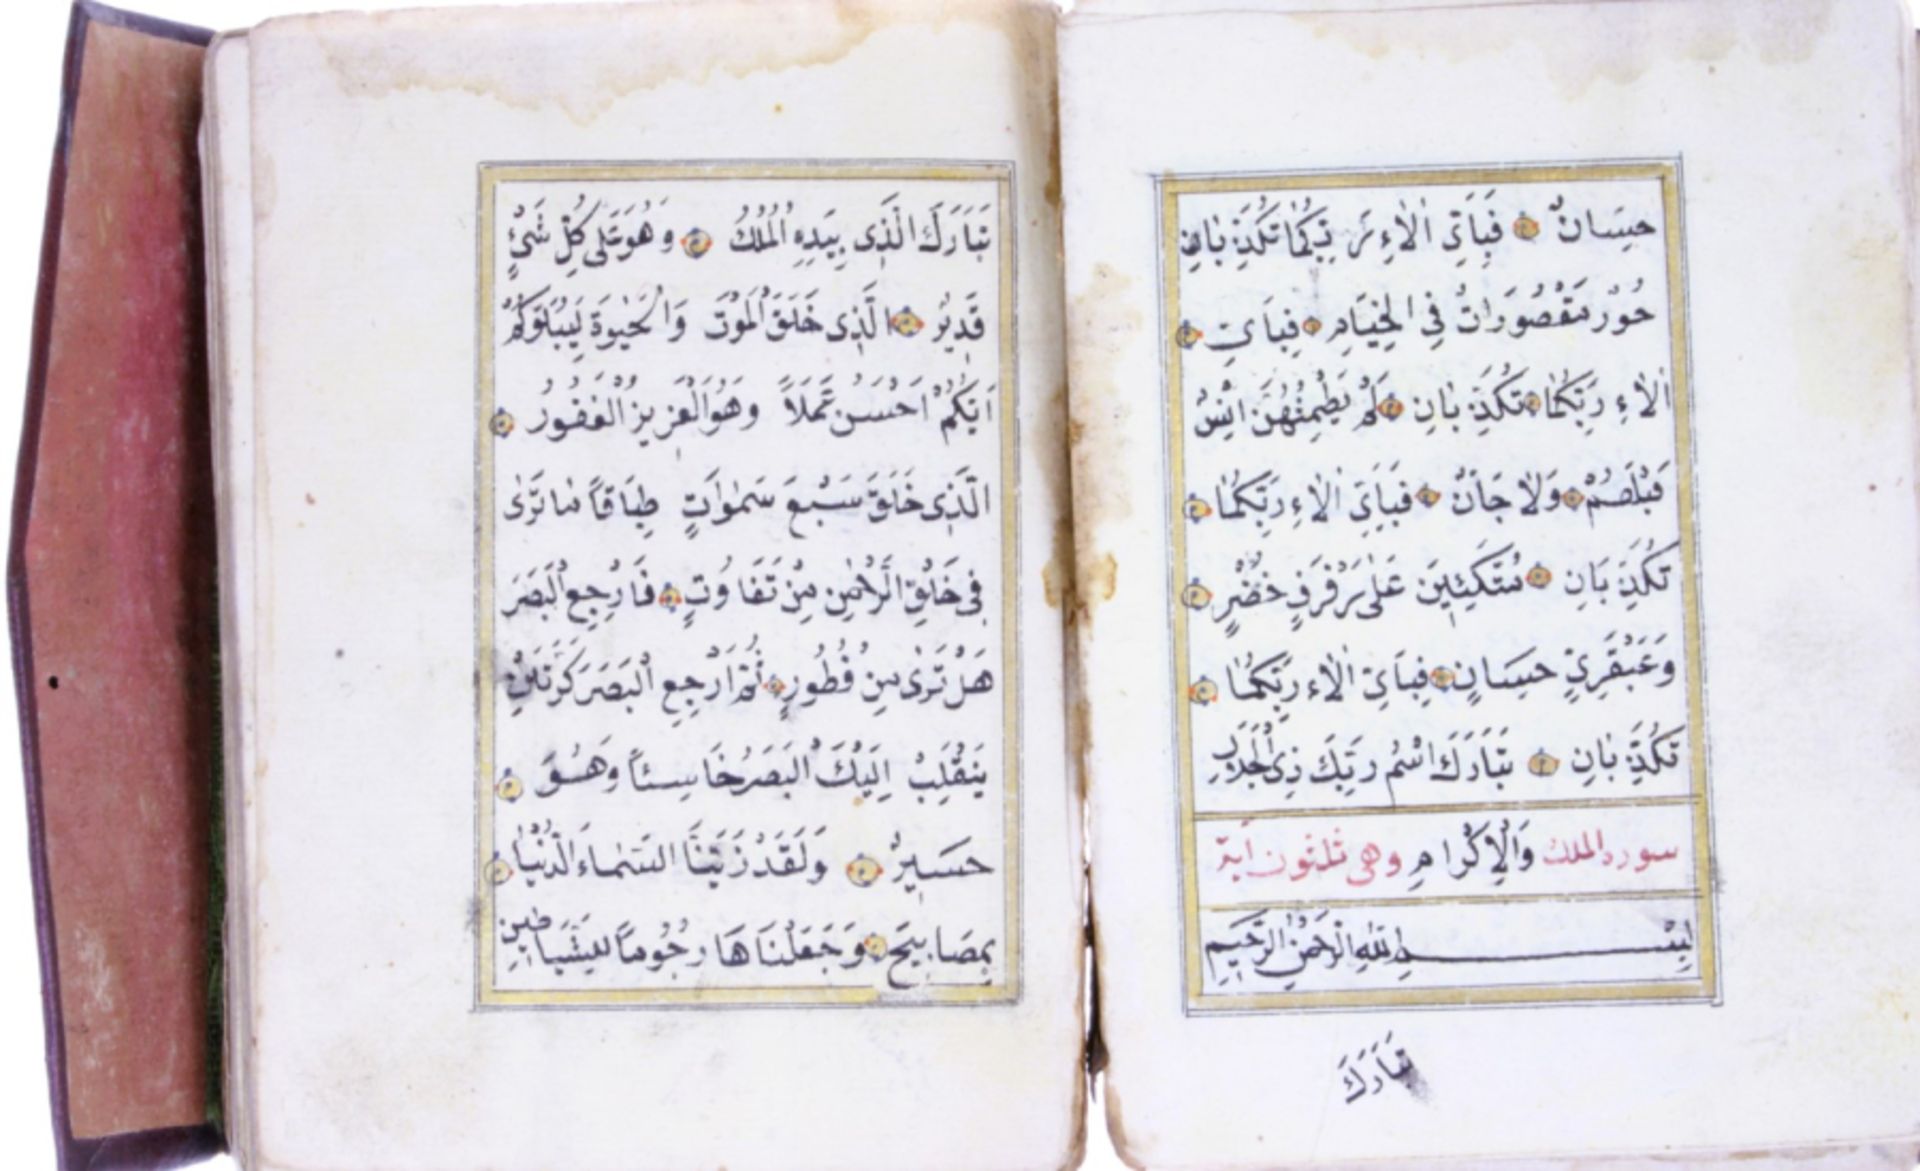 حِسَانٌ فَبِاَيِّ اٰلَاءِ رَبِّكُمَا تُكَذِّبَانِ
حُورٌ مَقْصُورَاتٌ فِي الْخِيَامِ فَبِاَيِّ
اٰلَاءِ رَبِّكُمَا تُكَذِّبَانِ لَمْ يَطْمِثْهُنَّ اِنْسٌ
قَبْلَهُمْ وَلَا جَانٌّ فَبِاَيِّ اٰلَاءِ رَبِّكُمَا
تُكَذِّبَانِ مُتَّكِئِينَ عَلٰى رَفْرَفٍ خُضْرٍ
وَعَبْقَرِيٍّ حِسَانٍ فَبِاَيِّ اٰلَاءِ رَبِّكُمَا
تُكَذِّبَانِ تَبَارَكَ اسْمُ رَبِّكَ ذِي الْجَلَالِ
سورة الملك وَالْاِكْرَامِ وهى ثلثون آية
بِسْمِ اللّٰهِ الرَّحْمٰنِ الرَّحِيمِ
تَبَارَكَ
تَبَارَكَ الَّذِى بِيَدِهِ الْمُلْكُ وَهُوَ عَلٰى كُلِّ شَىْءٍ
قَدِيرٌ الَّذِى خَلَقَ الْمَوْتَ وَالْحَيٰوةَ لِيَبْلُوَكُمْ
اَيُّكُمْ اَحْسَنُ عَمَلًا وَهُوَ الْعَزِيزُ الْغَفُورُ
الَّذِى خَلَقَ سَبْعَ سَمٰوَاتٍ طِبَاقًا مَا تَرٰى
فِى خَلْقِ الرَّحْمٰنِ مِنْ تَفَاوُتٍ فَارْجِعِ الْبَصَرَ
هَلْ تَرٰى مِنْ فُطُورٍ ثُمَّ ارْجِعِ الْبَصَرَ كَرَّتَيْنِ
يَنْقَلِبْ اِلَيْكَ الْبَصَرُ خَاسِئًا وَهُوَ
حَسِيرٌ وَلَقَدْ زَيَّنَّا السَّمَاءَ الدُّنْيَا
بِمَصَابِيحَ وَجَعَلْنَاهَا رُجُومًا لِلشَّيَاطِينِ